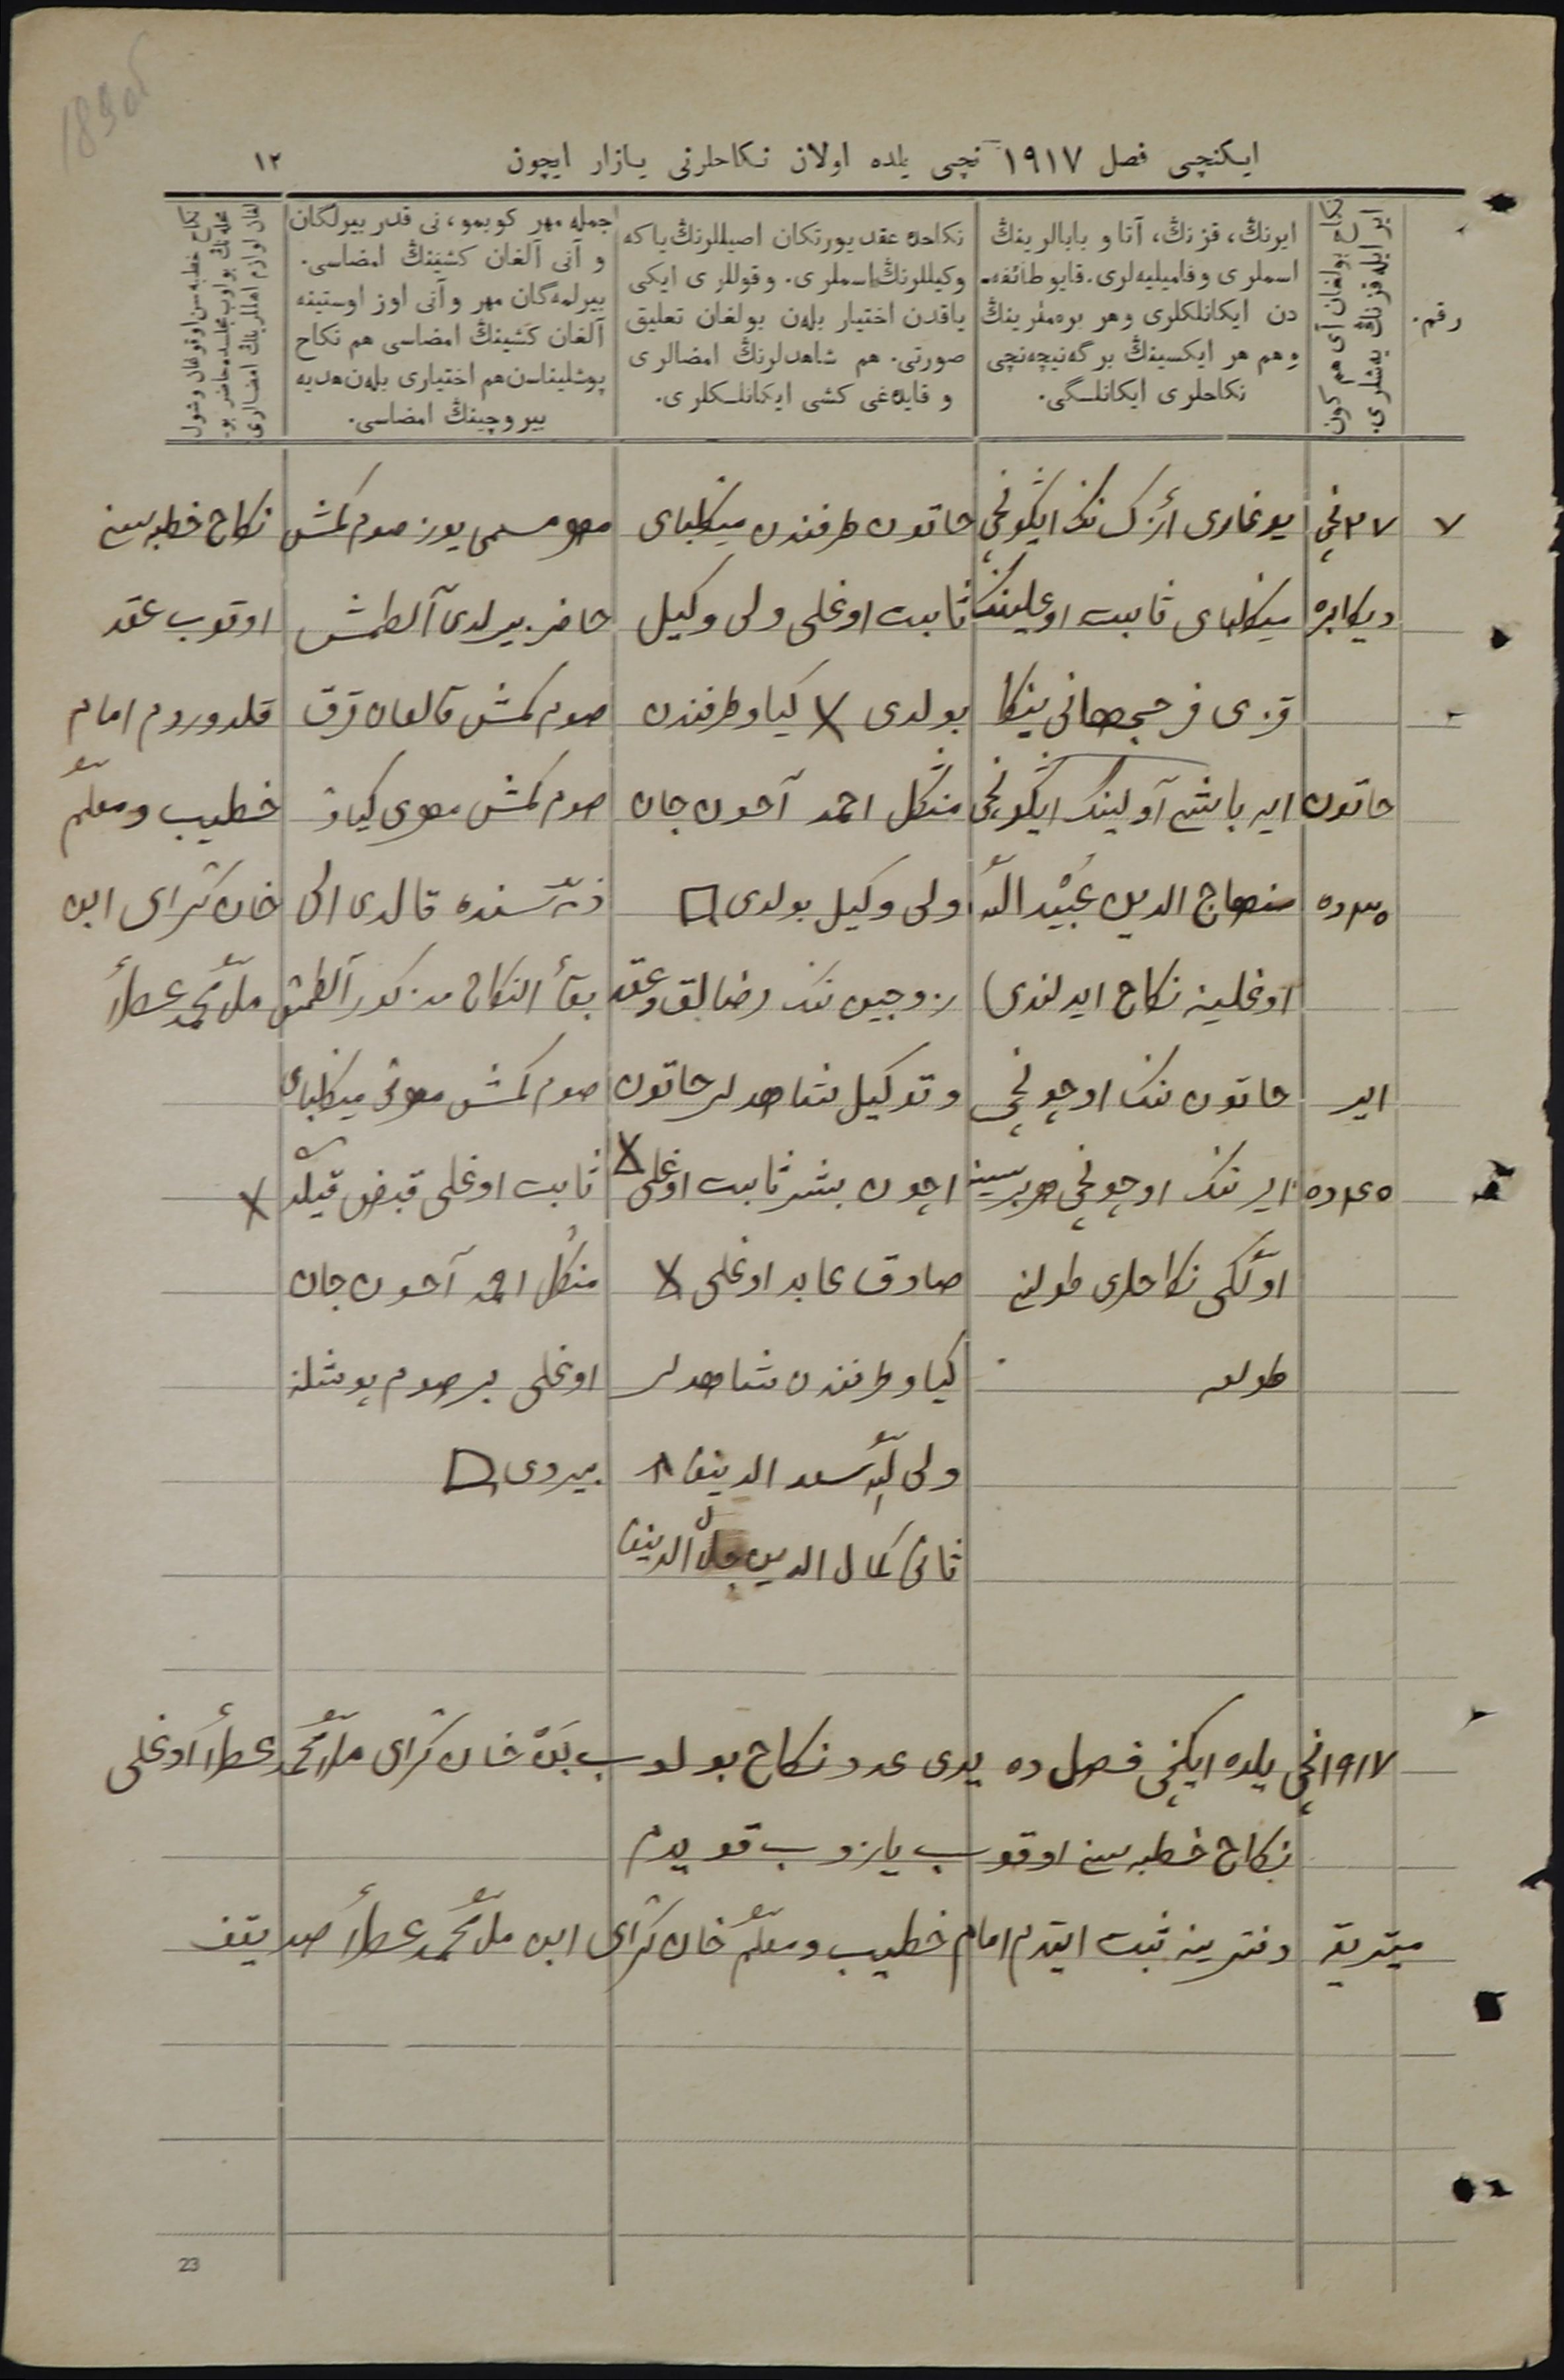 189об
ایکنچی فصل ١٩١٧ نچی یلده اولان نکاحلرنی یازار ایچون
١٢
رقم.
نکاح بولغان آی هم کون
ایر ایله قزنڭ یه‌شلری.
ایرنڭ، قزنڭ، آتا و بابالرینڭ
اسملری و فامیلیه‌لری. قایو طائفه-
دن ایکانلکلری وهر برەمڭرینڭ
وهم هر ایکسینڭ برگه‌نیچه‌نچی
نکاحلری ایکانلىگی.
نکاحده عقد یورتکان اصیللرنڭ یا که
وکیللرنڭ اسملری. و قوللری ایکی
یاقدن اختیار بله‌ن بولغان تعلیق
صورتی. هم شاهدلرنڭ امضالری
و قایدەغی کشی ایکانلىکلری.
جمله مهر کوبمو، نی قدر بیرلگان
و آنی آلغان کشینڭ امضاسی.
بیرلمه‌گان مهر و آنی اوز اوستینه
آلغان کشینڭ امضاسی هم نکاح
پوشلیناسن هم اختیاری بله‌ن هدیه
بیروچینڭ امضاسی.
نکاح خطبه‌سن اوقوغان وشول
٧
٢٧نچی
دیکابره
خاتون
٣٥ ده
ایر
٤٥ ده
یوغاری اُزک ننک ایکونچی
مینکلبای ثابت اوغلیننک
قزی فرحجهانی بیکا
ایر باش آولیننک ایکونچی
منهاج الدین عُبَیْد اللّه
اوغلینه نکاح ایدلندی)
خاتون ننک اوچونچی
ایر ننک اوچونچی هربرسینه
اوّلکی نکاحلری طولنے
طولمه
خاتون طرفندن مینکلبای
ثابت اوغلی ولی وکیل
بولدی X کیاو طرفندن
منکل احمد آخون جان
ولی وکیل بولدی
زوجین ننک رضالق وعقد
وتوکیل شاهدلر خاتون
اچون بشر ثابت اوغلی X
صادق عابد اوغلی X
کیاو طرفندن شاهدلر
ولی لله سعد الدینف
ثانی کمال الدین جلال الدینف
مهر مسمی یوز صوم کمش
حاضر بیرلدی آلطمش
صوم کمش قالغان قرق
صوم کمش مهری کیاو
ذمّه‌سنده قالدی الی
بقاٴ النکاح مذکور آلطمش
صوم کمش مهرنی مینکلبای
ثابت اوغلی قبض قیلدی
منکل احمد آخون جان
اوغلی بر صوم پوشلنه
بیردی
نکاح خطبه سینے
اوقوب عقد
قلدوردم امام
خطیب ومعلّم
خان کرای ابن
ملّا محمد عطاٴ
X
١٩١٧نچی یلده ایکنچی فصل ده یدی عدد نکاح بولوب بَنْ خان کرای ملّا محمد عطاٴ اوغلی
نکاح خطبه سینے اوقوب یازوب قویدم
میتریقه دفترینه ثبت ایتدم امام خطیب ومعلّم خان کرای ابن ملّا محمد عطاٴ صدیقف
23